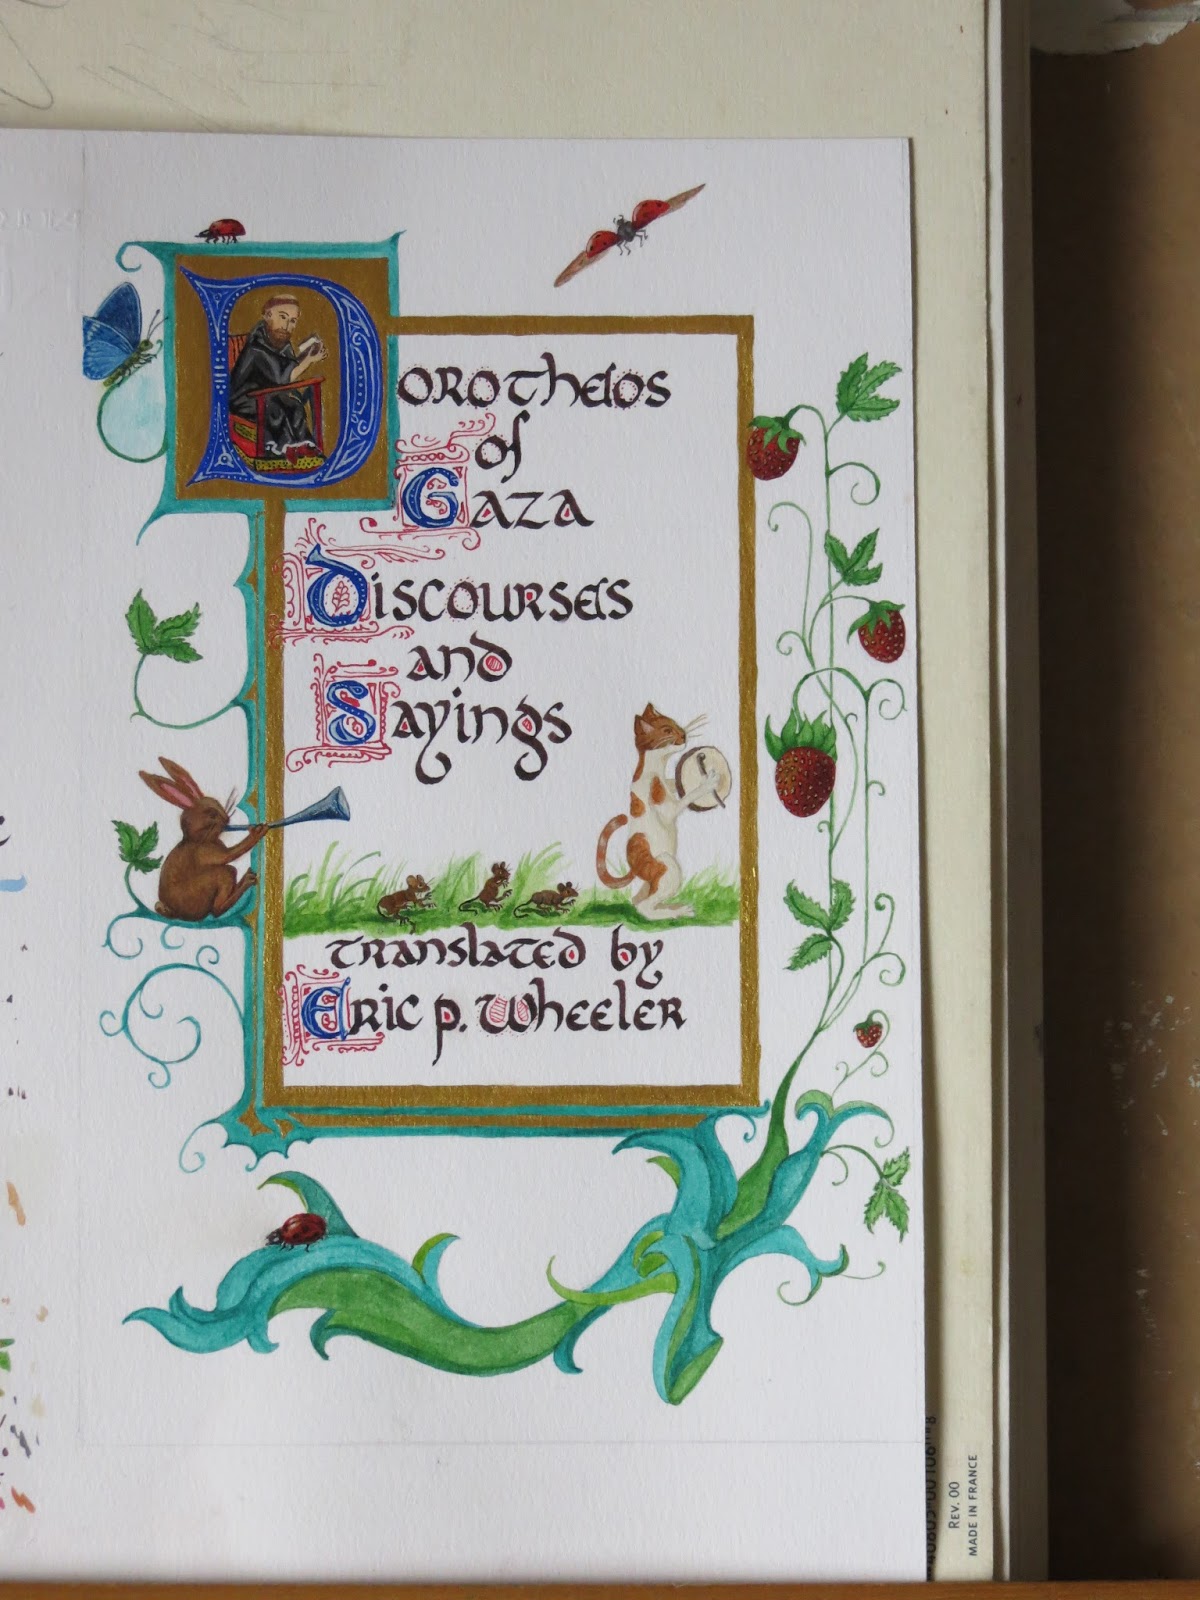 Dorotheos
of
Gaza
Discourses
and
Sayings
translated by
Eric P. Wheeler
Rev. 00
MADE IN FRANCE